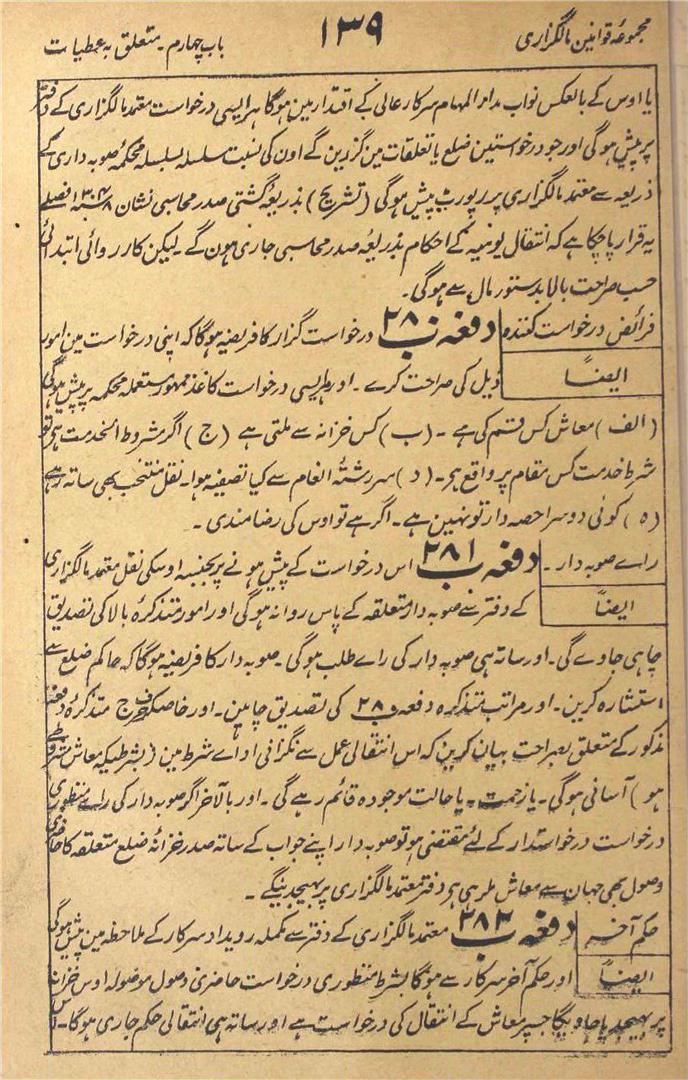 مجموعۂ قوانین مالگزاری
۱۳۹
باب چہارم۔ متعلق بہ عطیات
یا اوس کے بالعکس نواب مدار المہام سرکار عالی کے اقتدار مین ہوگا ہر ایسی درخواست معتمد مالگزاری کے دفتر
پر پیش ہوگی اور جو درخواستین ضلع یا تعلقات مین گزرین گے اون کی نسبت سلسلہ بسلسلہ محکمۂ صوبہ داری کے
ذریعہ سے معتمد مالگزاری پر رپورٹ پیش ہوگی (تشریح) بذریعۂ گشتی صدر محاسبی نشان
یہ قرار پاچکا ہے کہ انتقال یومیہ کے احکام بذریعۂ صدر محاسبی جاری ہون گے۔ لیکن کارروائی ابتدائی
حسب صراحت بالا بدستور مال سے ہوگی۔
فرائض درخواست کنندہ دفعہ ۲۸۰ ب درخواست گزار کا فریضہ ہوگا کہ اپنی درخواست مین امور
ایضاً ذیل کی صراحت کرے۔ اور ہر ایسی درخواست کاغذ ممہور مستعملہ محکمہ پر پیش ہوگی
(الف) معاش کس قسم کی ہے۔ (ب) کس خزانہ سے ملتی ہے (ج) اگر مشروط الخدمت ہی تو
شرط خدمت کس مقام پر واقع ہی۔ (د) سررشتۂ انعام سے کیا تصفیہ ہوا۔ نقل منتخب بھی ساتھ رہے
(ہ) کوئی دوسرا حصہ دار تو نہین ہے۔ اگر ہے تو اوس کی رضامندی۔
راے صوبہ دار۔ دفعہ ۲۸۱ ب اس درخواست کے پیش ہونے پر بجنسہ اوسکی نقل معتمد مالگزاری
ایضاً کے دفتر سے صوبہ دار متعلقہ کے پاس روانہ ہوگی اور امور متذکرۂ بالا کی تصدیق
چاہی جاوے گی۔ اور ساتہ ہی صوبہ دار کی راے طلب ہوگی۔ صوبہ دار کا فریضہ ہوگا کہ حاکم ضلع سے
استشارہ کرین۔ اور مراتب متذکرہ دفعہ ۲۸۰ ب کی تصدیق چاہین۔ اور خاصکر حرف ج متذکرۂ دفعۂ
مذکور کے متعلق بصراحت بیان کرین کہ اس انتقالی عمل سے نگرانی اداے شرط مین (بشرطیکہ معاش مشروط
ہو) آسانی ہوگی۔ یا زحمت۔ یا حالت موجودہ قائم رہے گی۔ اور بالآخر اگر صوبہ دار کی راے منظوری
درخواست درخواستدار کے لئے مقتضی ہو تو صوبہ دار اپنے جواب کے ساتہ صدر خزانۂ ضلع متعلقہ کا حاضری
وصول بھی جہان سے معاش ملرہی ہو دفتر معتمد مالگزاری پر بہیجدینگے۔
حکم آخر دفعہ ۲۸۲ ب معتمد مالگزاری کے دفتر سے مکملہ رویداد سرکار کے ملاحظہ مین پیش ہوگی
ایضاً اور حکم آخر سرکار سے ہوگا بشرط منظوری درخواست حاضری وصول موصولہ اوس خزانہ
پر بہیجدیا جاویگا جسپر معاش کے انتقال کی درخواست ہے اور ساتہ ہی انتقالی حکم جاری ہوگا۔